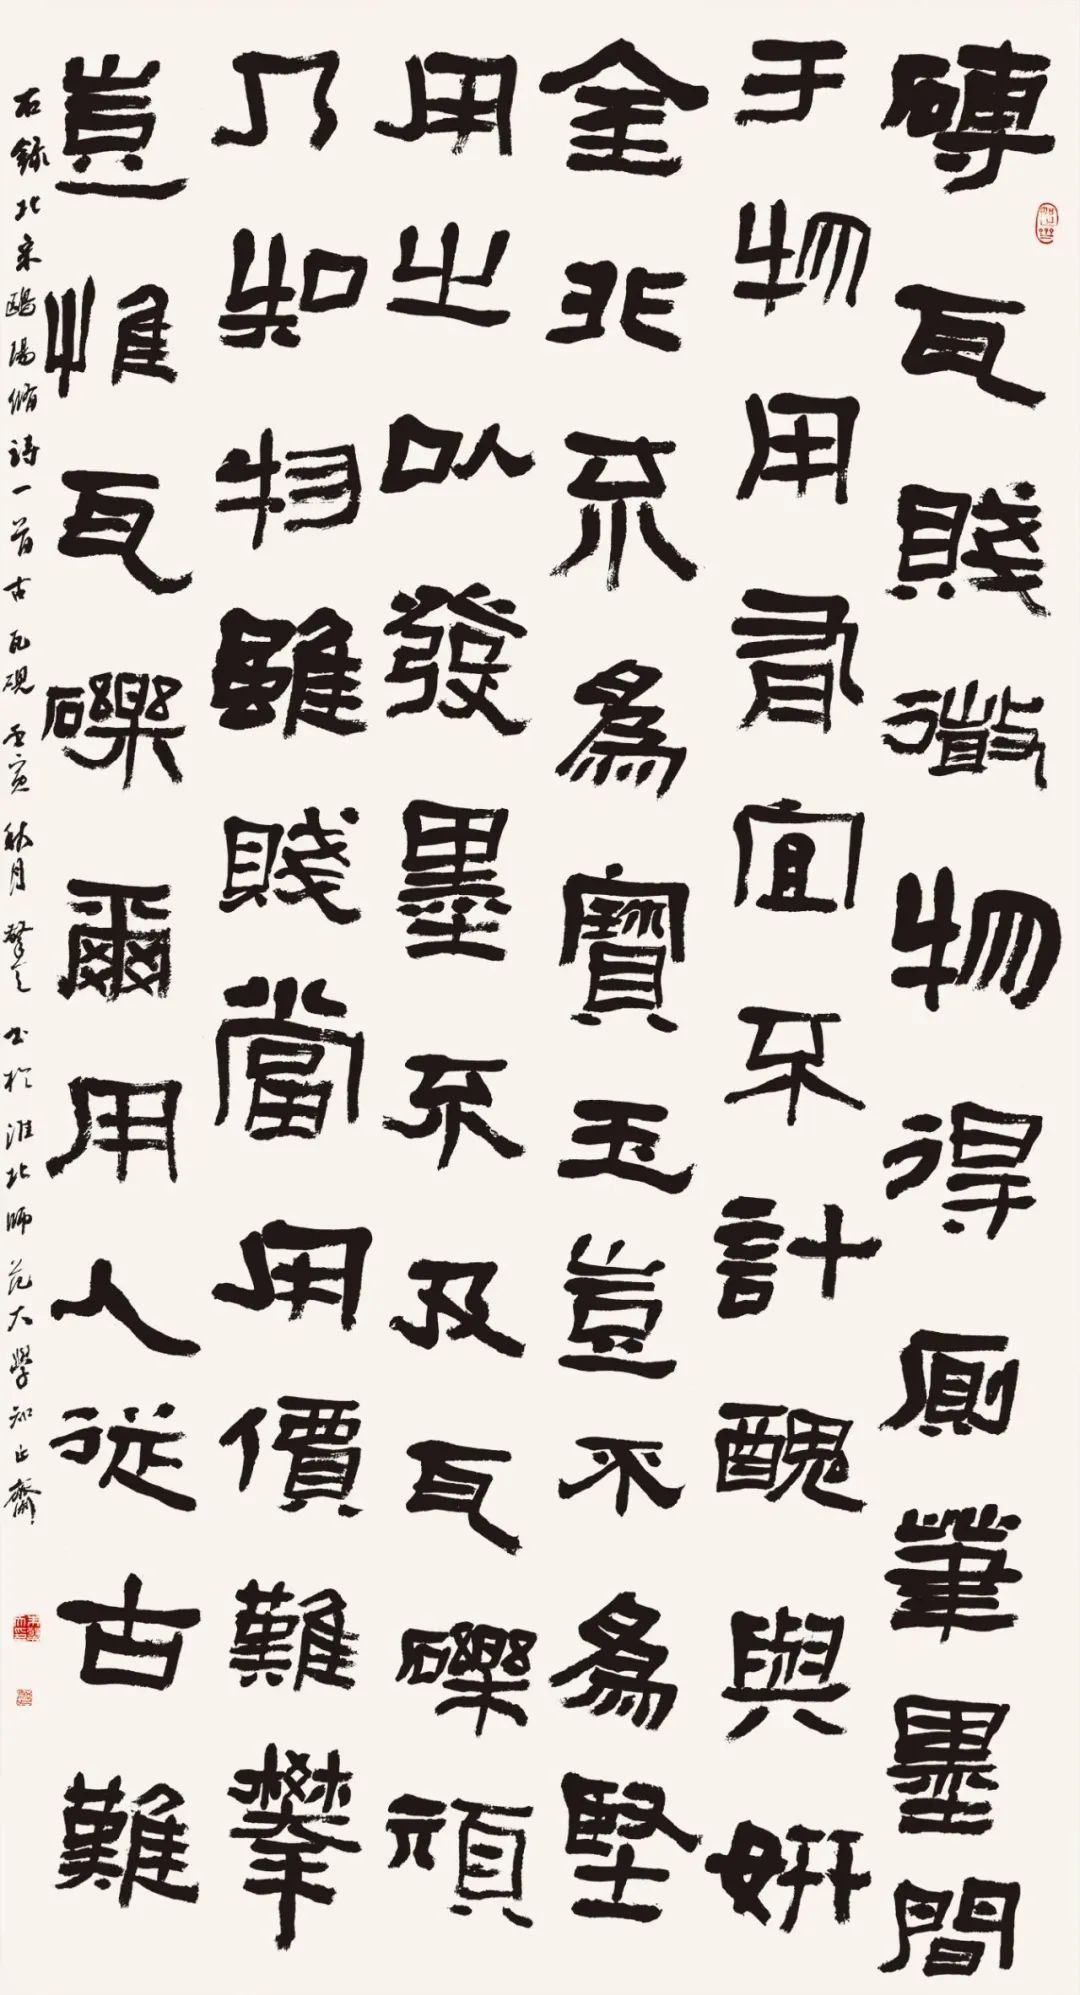 磚瓦賤微物得廁筆墨間
于物用有宜不計醜與妍
金非不為寶玉豈不為堅
用之以發墨不及瓦礫頑
乃知物雖賤當用價難攀
豈惟瓦礫爾用人從古難
右錄北宋歐陽脩詩一首古瓦硯壬寅秋月书於淮北師范大學知止齋